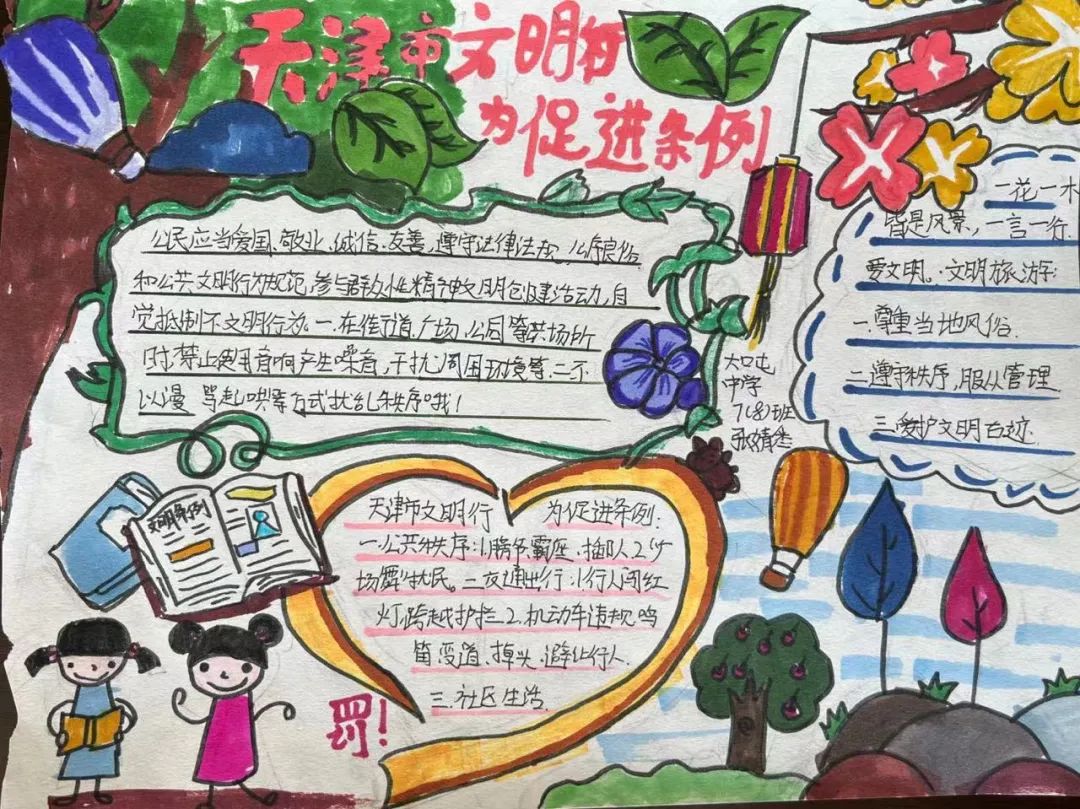 天津市文明行
为促进条例
公民应当爱国、敬业、诚信、友善,遵守法律法规、公序良俗
和公共文明行为规范,参与群众性精神文明创建活动,自
觉抵制不文明行为。一、在街道、广场、公园等公共场所
时,禁止使用音响产生噪音,干扰周围环境等、二不
以谩骂起哄等方式扰乱秩序哦!
大口屯
中学
7(8)班
一花一木
皆是风景,一言一行.
爱文明。·文明旅游:
一.尊重当地风俗.
二.遵守秩序,服从管理
三.爱护文明古迹.
文明条例
天津市文明行 为促进条例:
一.公共秩序:1.占座、霸座、插队.2.广
场舞扰民。二交通出行:1.行人闯红
灯,跨越护栏2.机动车违规鸣
笛.变道、掉头、避让行人.
三.社区生活.
罚!